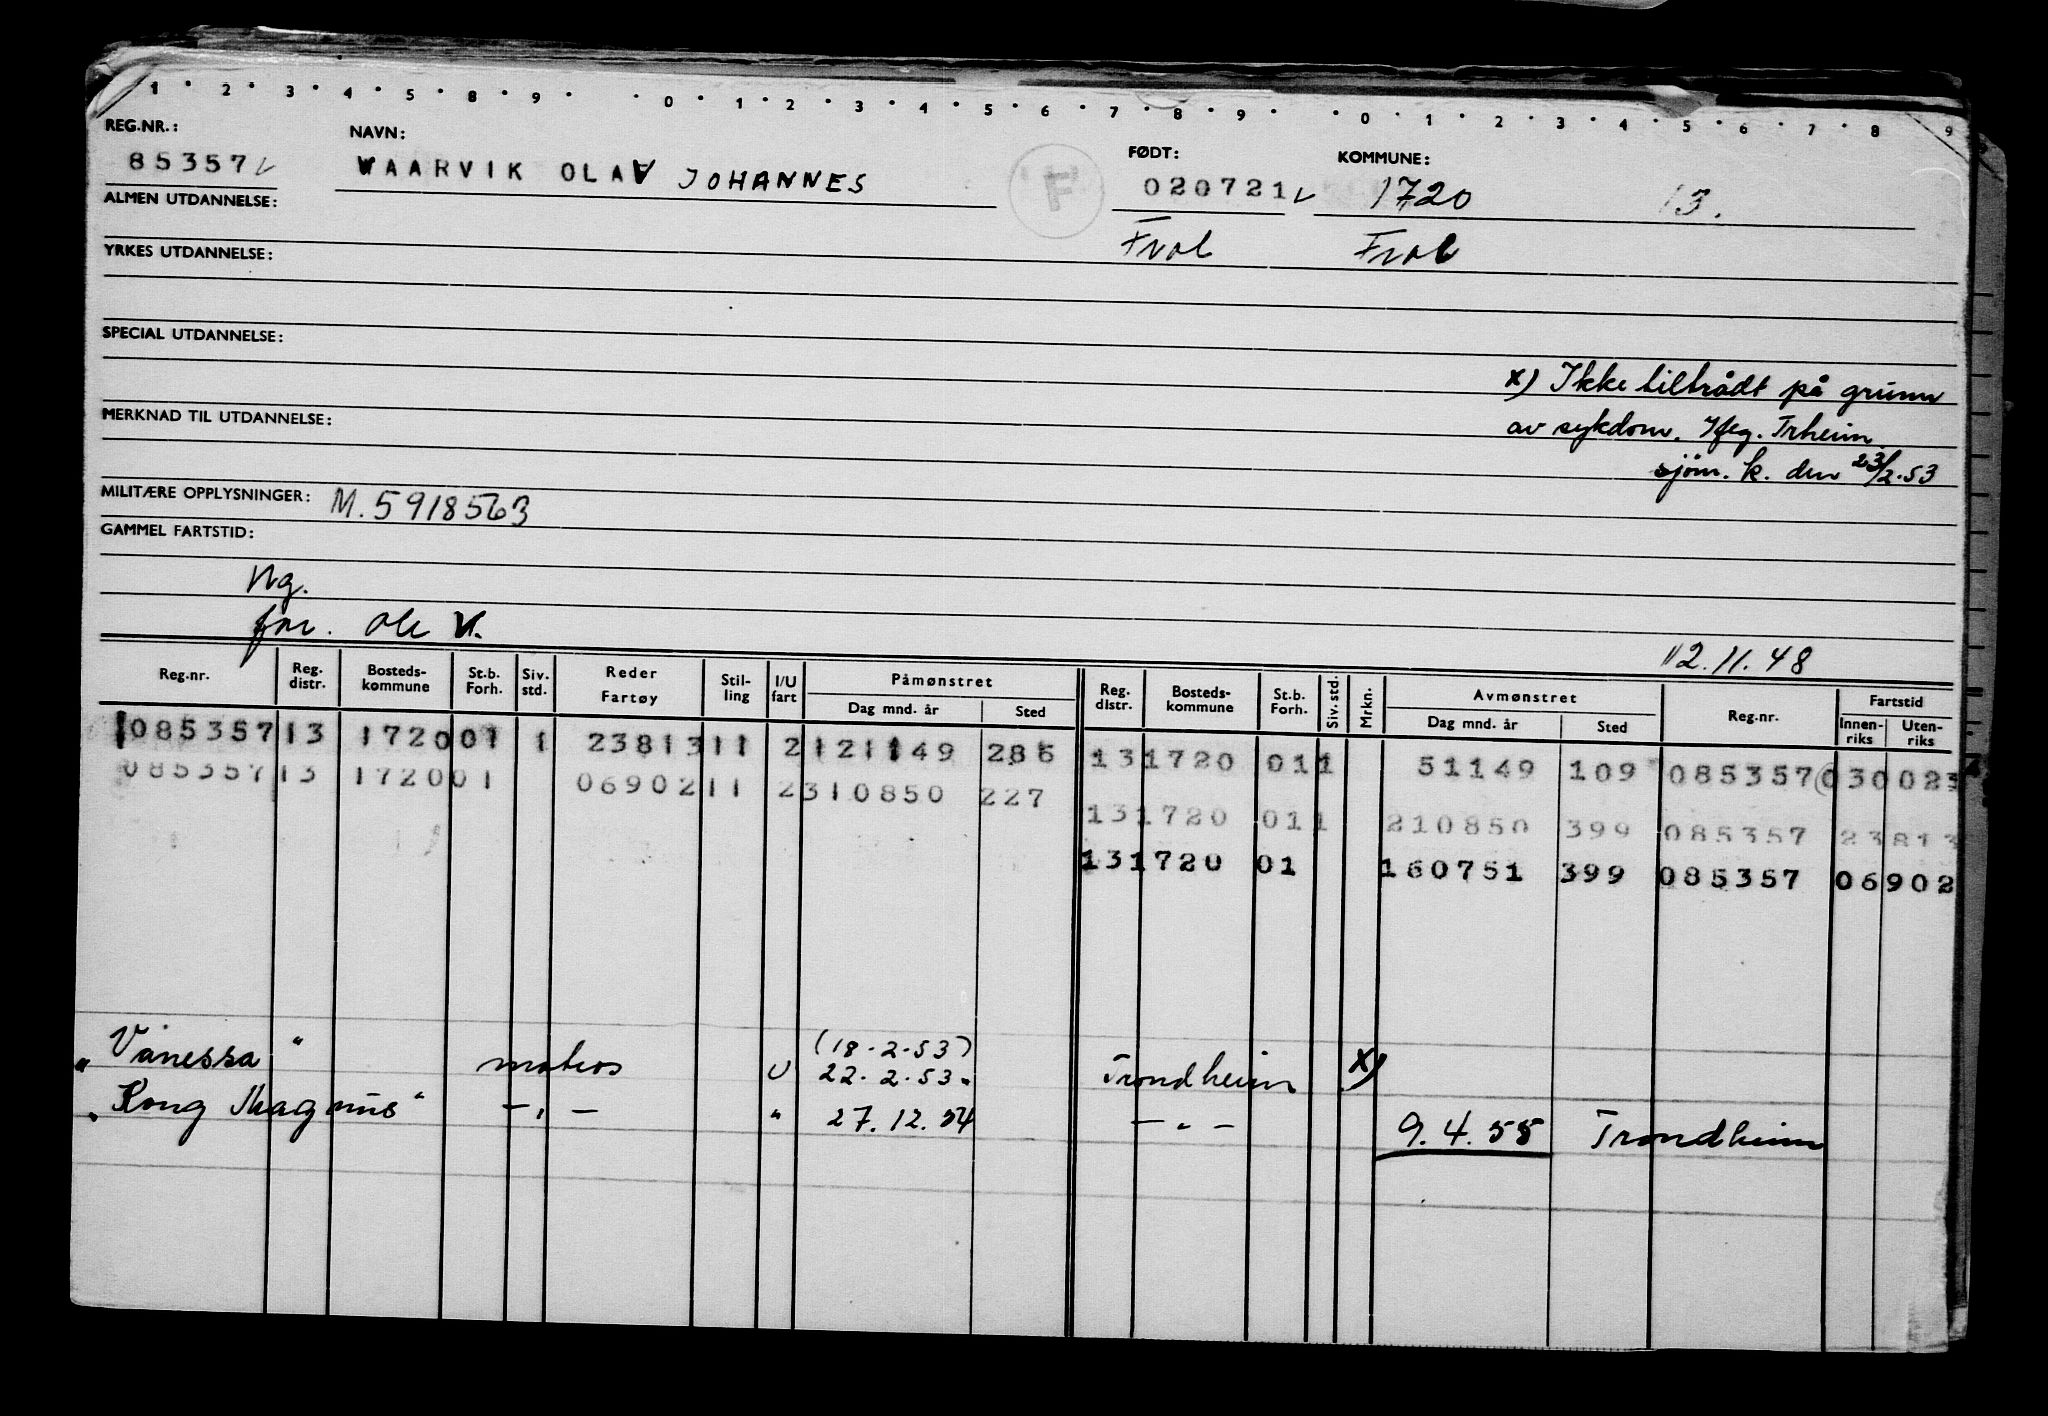 1 · 2 · 3 · 4 · 5 · 8 · 9 · · 0 · 1 · 2 · 3 · 4 · 5 · 6 · 7 · 8 · 9 · · 0 · 1 · 2 · 3 · 4 · 5 · 6 · 7 · 8 9
REG.NR.: NAVN: FØDT: KOMMUNE:
85357 VAARVIK OLAV JOHANNES F 020721 1720 13.
ALMEN UTDANNELSE: Frol Frol
YRKES UTDANNELSE:
SPECIAL UTDANNELSE:
x) Ikke tiltrådt på grunn
MERKNAD TIL UTDANNELSE: av sykdom. Ifeg. Trheim
sjøm. k. den 23/2.53
MILITÆRE OPPLYSNINGER: M.5918563
GAMMEL FARTSTID:
Ng.
far. Ole V. 12.11.48
Reg.nr. Reg. distr. Bosteds-kommune St.b. Forh. Siv. std. Reder Fartøy Stil-ling I/U fart Påmønstret Reg. distr. Bosteds-kommune St.b. Forh. Siv. std. Mrkn. Avmønstret Reg.nr. Fartstid
Dag mnd. år Sted Dag mnd. år Sted Innen-riks Uten-riks
1085357 13 1720 01 1 23813 11 2 121149 286 13 1720 01 1 51149 109 085357 030 023
085357 13 1720 01 06902 11 2 310850 227
13 1720 01 1 210850 399 085357 23813
13 1720 01 160751 399 085357 06902
(18-2-53)
"Vanessa" matros U 22.2.53. Trondheim x)
"Kong Magnus" -"- " 27.12.54 -"- 9.4.55 Trondheim